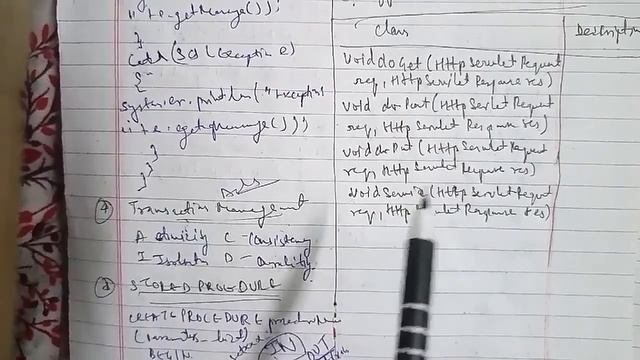 " + e.getMessage());
}
Catch (SQLException e)
{
System.err.println("Exception
" + e.getMessage());
}
}
}
④ Transaction Management
A atomicity C - consistency
I Isolation D - Durability
⑧ STORED PROCEDURE
CREATE PROCEDURE procedurename
(parameter-list)
BEGIN
IN OUT
Class
void doGet (HttpServletRequest
req, HttpServletResponse res)
void doPost (HttpServletRequest
req, HttpServletResponse res)
void doPut (HttpServletRequest
req, HttpServletResponse res)
void Service (HttpServletRequest
req, Http let Response res)
Description